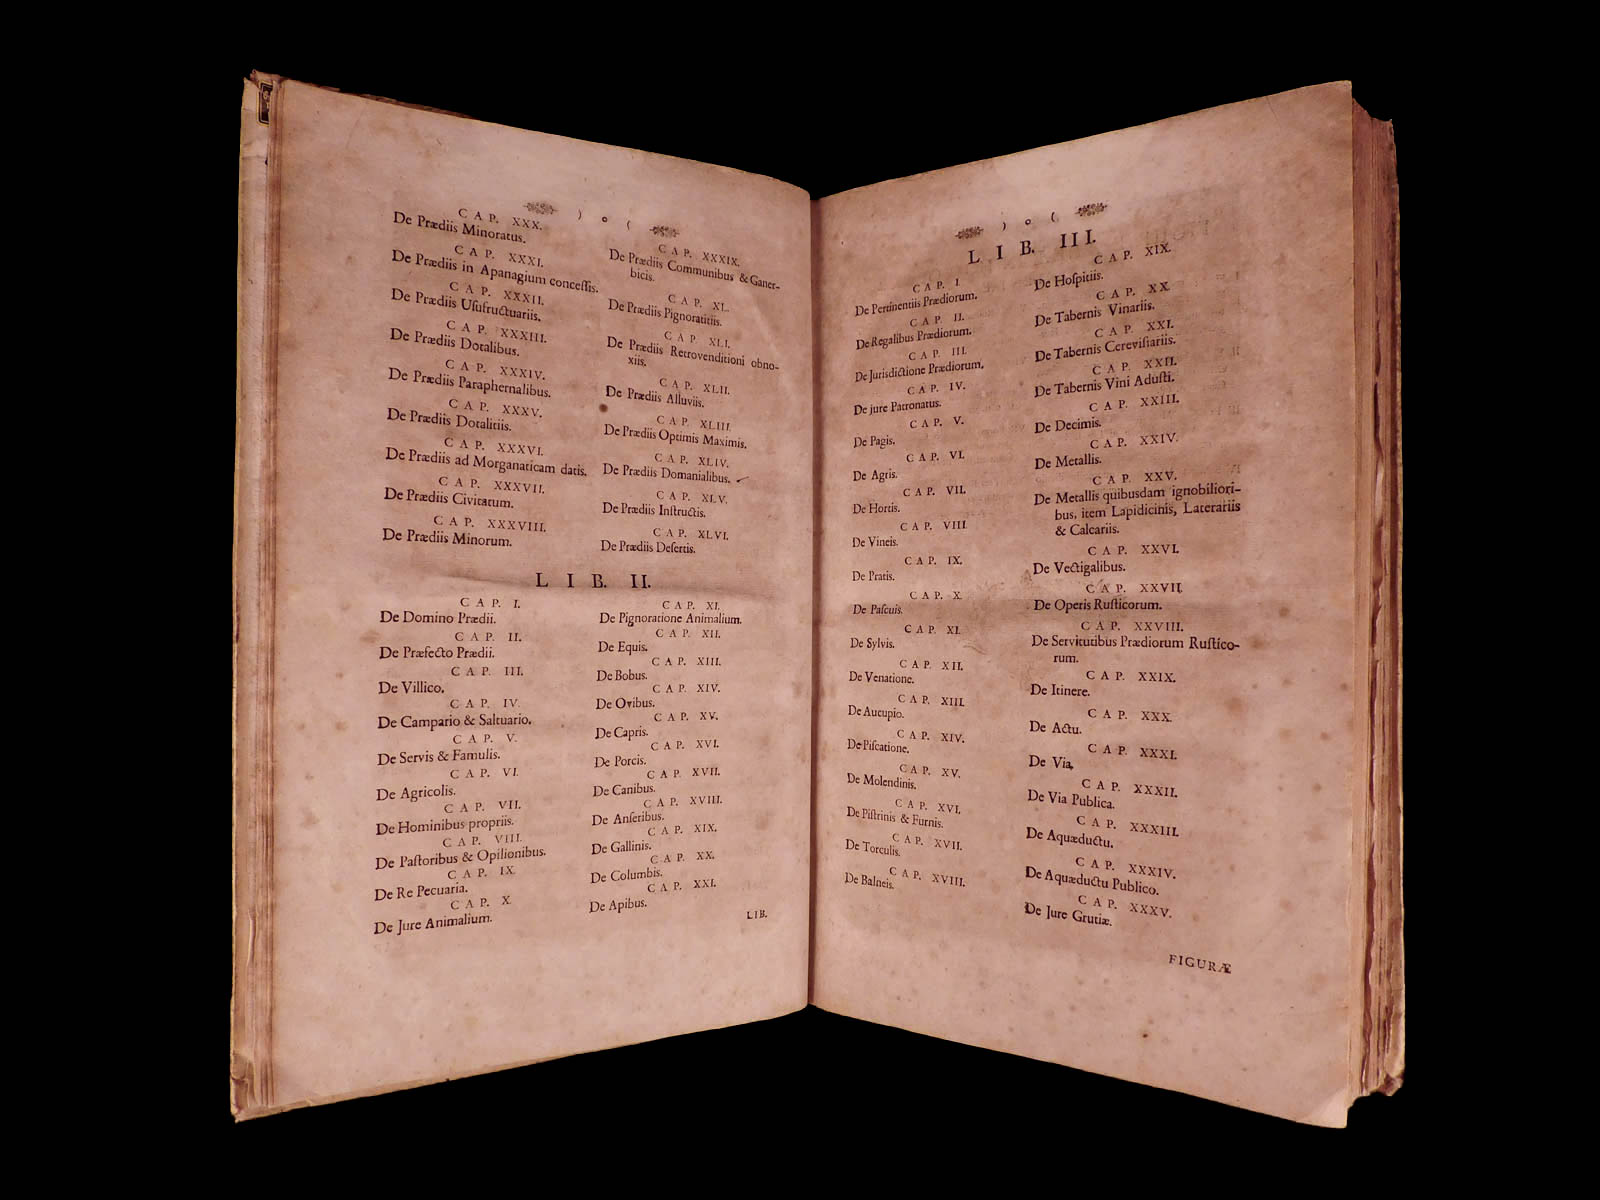 ) o (
CAP. XXX.
De Prædiis Minoratus.
CAP. XXXI.
De Prædiis in Apanagium conceſſis.
CAP. XXXII.
De Prædiis Uſufructuariis.
CAP. XXXIII.
De Prædiis Dotalibus.
CAP. XXXIV.
De Prædiis Paraphernalibus.
CAP. XXXV.
De Prædiis Dotalitiis.
CAP. XXXVI.
De Prædiis ad Morganaticam datis.
CAP. XXXVII.
De Prædiis Civitatum.
CAP. XXXVIII.
De Prædiis Minorum.
CAP. XXXIX.
De Prædiis Communibus & Ganer-
bicis.
CAP. XL.
De Prædiis Pignoratitiis.
CAP. XLI.
De Prædiis Retrovenditioni obno-
xiis.
CAP. XLII.
De Prædiis Alluviis.
CAP. XLIII.
De Prædiis Optimis Maximis.
CAP. XLIV.
De Prædiis Domanialibus.
CAP. XLV.
De Prædiis Inſtructis.
CAP. XLVI.
De Prædiis Deſertis.
LIB. II.
CAP. I.
De Domino Prædii.
CAP. II.
De Præfecto Prædii.
CAP. III.
De Villico.
CAP. IV.
De Campario & Saltuario.
CAP. V.
De Servis & Famulis.
CAP. VI.
De Agricolis.
CAP. VII.
De Hominibus propriis.
CAP. VIII.
De Paſtoribus & Opilionibus.
CAP. IX.
De Re Pecuaria.
CAP. X.
De Jure Animalium.
CAP. XI.
De Pignoratione Animalium.
CAP. XII.
De Equis.
CAP. XIII.
De Bobus.
CAP. XIV.
De Ovibus.
CAP. XV.
De Capris.
CAP. XVI.
De Porcis.
CAP. XVII.
De Canibus.
CAP. XVIII.
De Anſeribus.
CAP. XIX.
De Gallinis.
CAP. XX.
De Columbis.
CAP. XXI.
De Apibus.
LIB.
) o (
LIB. III.
CAP. I.
De Pertinentiis Prædiorum.
CAP. II.
De Regalibus Prædiorum.
CAP. III.
De Jurisdictione Prædiorum.
CAP. IV.
De jure Patronatus.
CAP. V.
De Pagis.
CAP. VI.
De Agris.
CAP. VII.
De Hortis.
CAP. VIII.
De Vineis.
CAP. IX.
De Pratis.
CAP. X.
De Paſcuis.
CAP. XI.
De Sylvis.
CAP. XII.
De Venatione.
CAP. XIII.
De Aucupio.
CAP. XIV.
De Piſcatione.
CAP. XV.
De Molendinis.
CAP. XVI.
De Piſtrinis & Furnis.
CAP. XVII.
De Torculis.
CAP. XVIII.
De Balneis.
CAP. XIX.
De Hoſpitiis.
CAP. XX.
De Tabernis Vinariis.
CAP. XXI.
De Tabernis Cereviſiariis.
CAP. XXII.
De Tabernis Vini Aduſti.
CAP. XXIII.
De Decimis.
CAP. XXIV.
De Metallis.
CAP. XXV.
De Metallis quibusdam ignobiliori-
bus, item Lapidicinis, Laterariis
& Calcariis.
CAP. XXVI.
De Vectigalibus.
CAP. XXVII.
De Operis Ruſticorum.
CAP. XXVIII.
De Servitutibus Prædiorum Ruſtico-
rum.
CAP. XXIX.
De Itinere.
CAP. XXX.
De Actu.
CAP. XXXI.
De Via.
CAP. XXXII.
De Via Publica.
CAP. XXXIII.
De Aquæductu.
CAP. XXXIV.
De Aquæductu Publico.
CAP. XXXV.
De Jure Grutiæ.
FIGURÆ